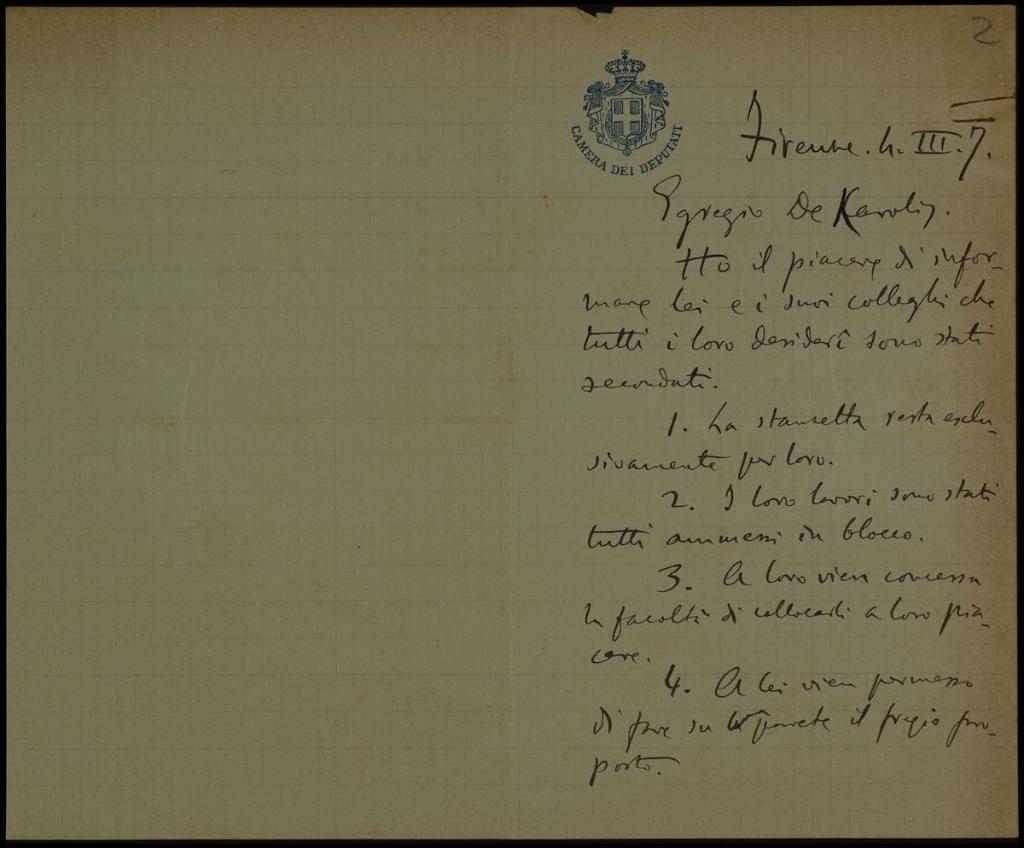 2
CAMERA DEI DEPUTATI
Firenze. 4. III. 7.
Egregio De Karolis.
Ho il piacere di infor-
mare lei e i suoi colleghi che
tutti i loro desiderî sono stati
secondati.
1. La stanzetta resta esclu-
sivamente per loro.
2. I loro lavori sono stati
tutti ammessi in blocco.
3. A loro vien concessa
la facoltà di collocarli a loro pia-
cere.
4. A lei vien permesso
di fare su parete il fregio pro-
posto.